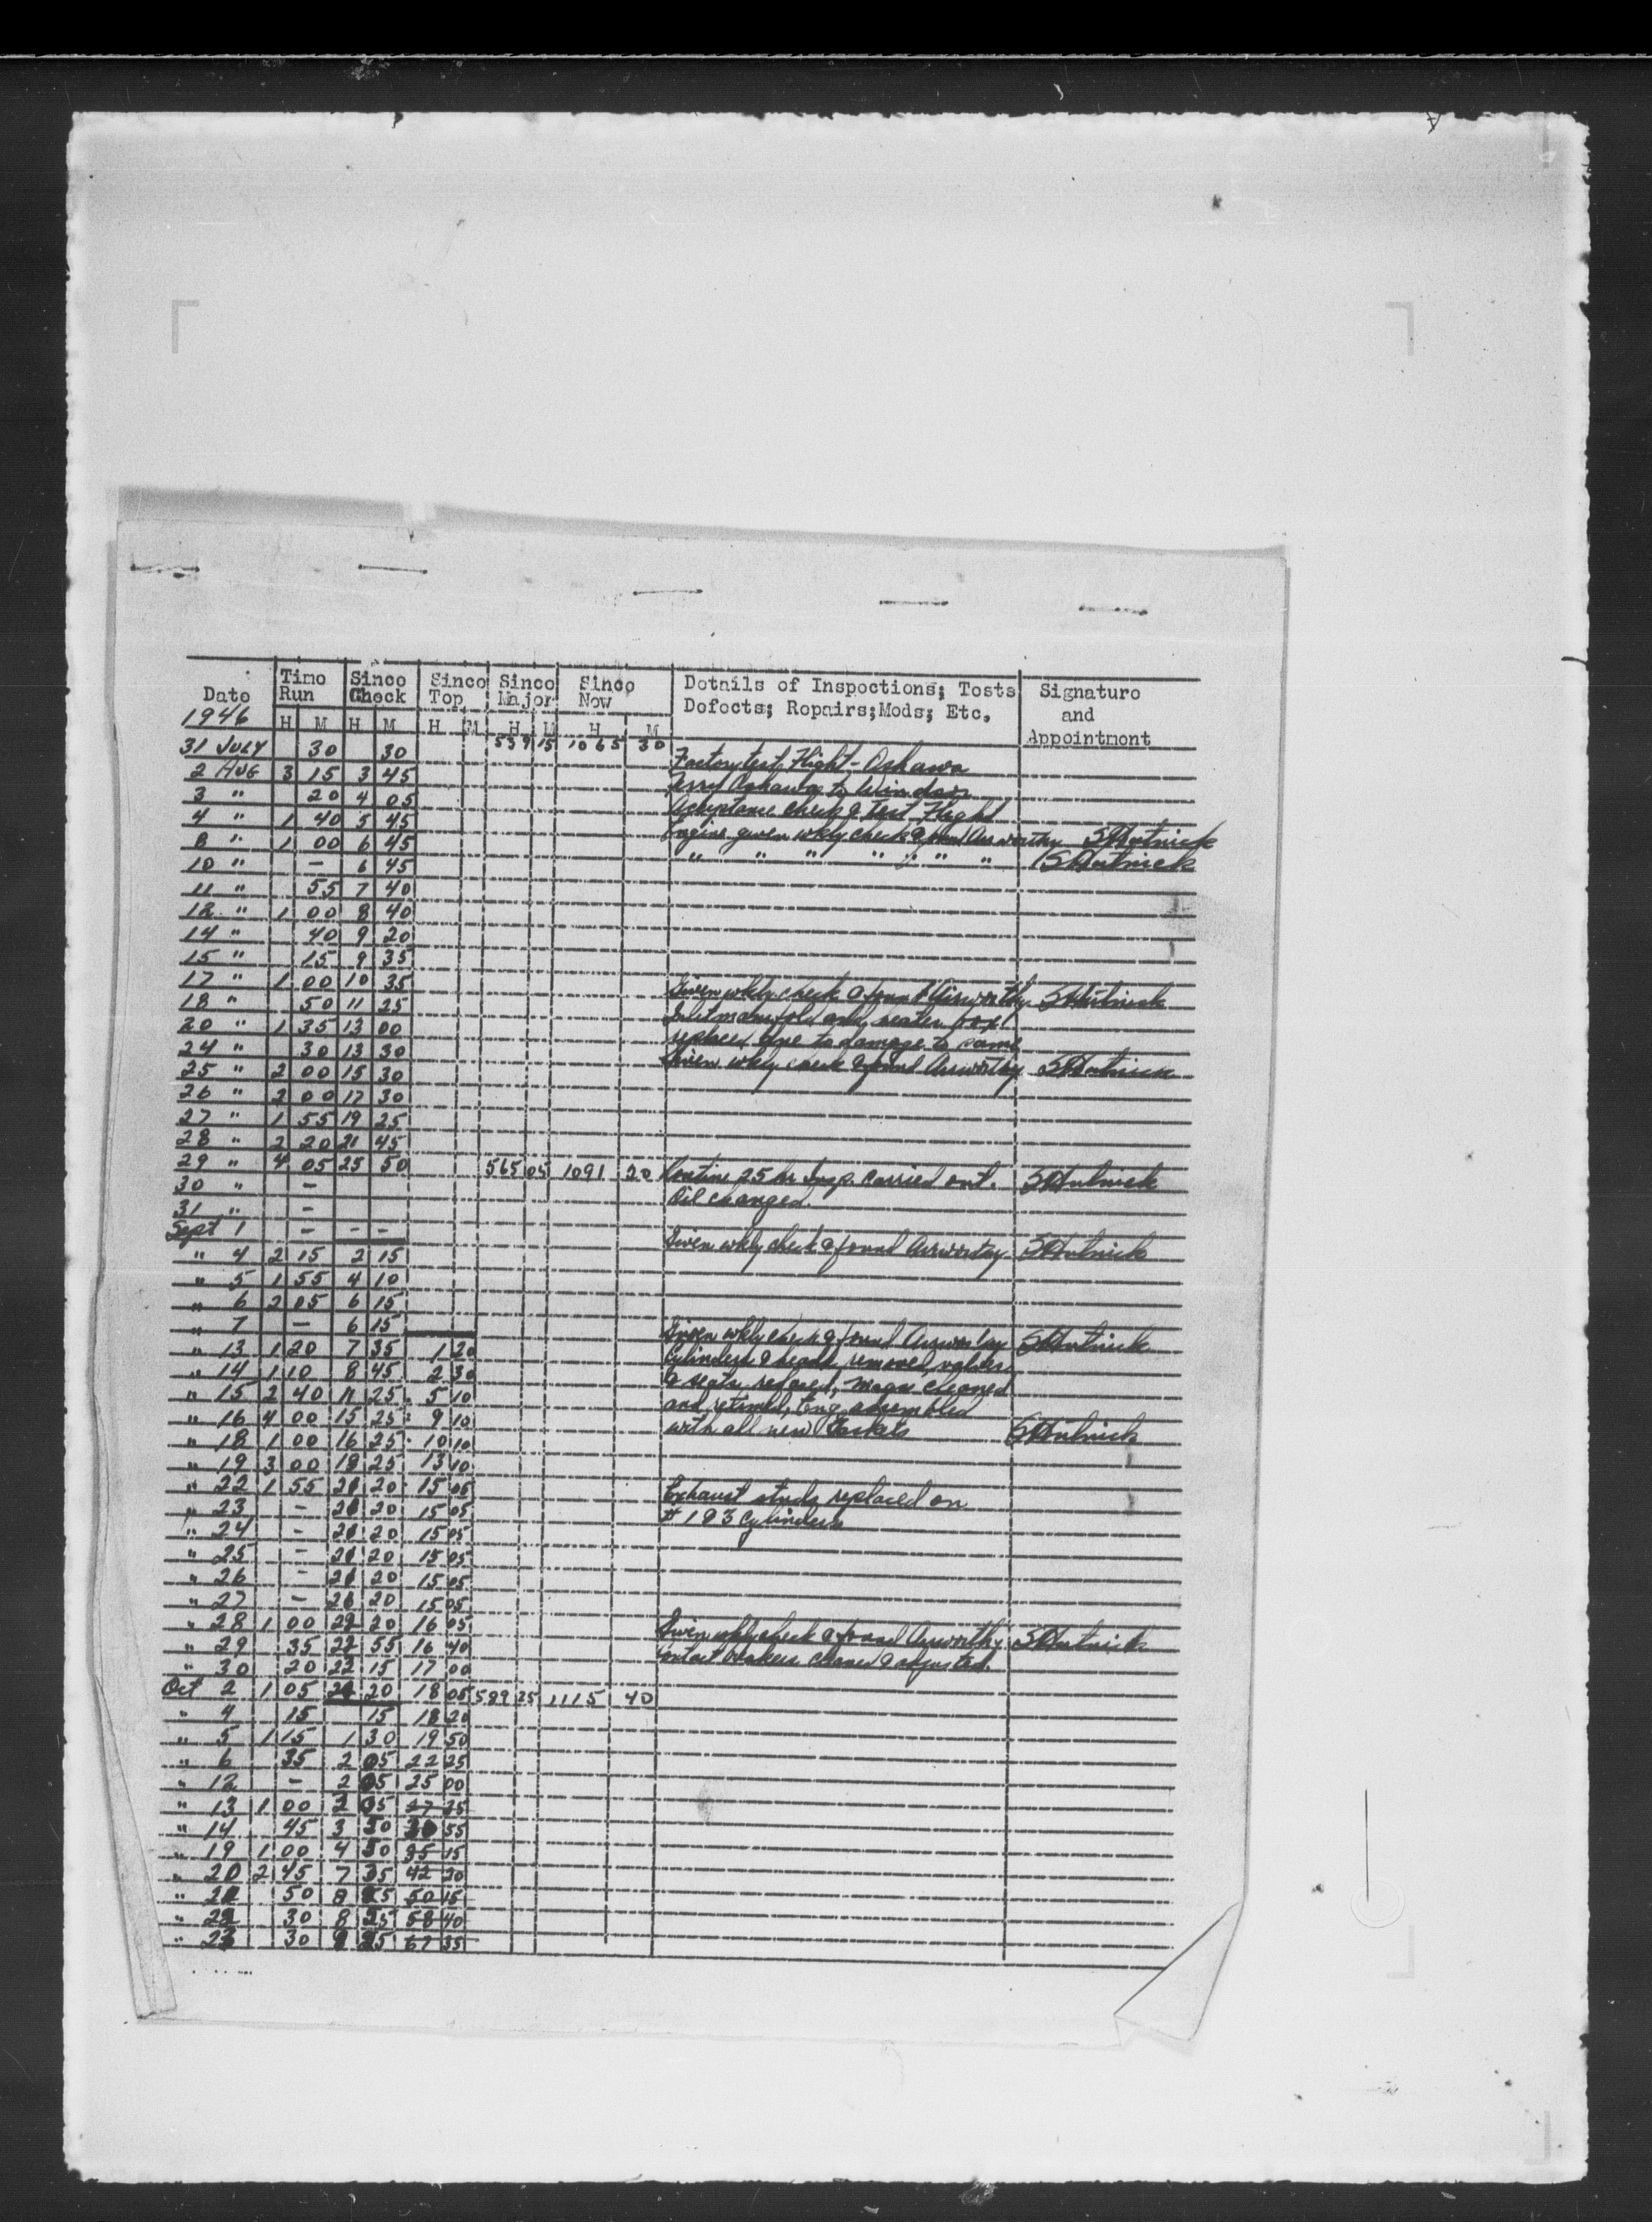 Date Time Run Since Check Since Top Since Major Since New Details of Inspections; Tests Signature
Defects; Repairs;Mods; Etc. and
1946 H M H M H M H M H M Appointment
31 JULY 30 30 539 15 1065 30 Factory test Flight - Oshawa
2 AUG 3 15 3 45 Ferry Oshawa to Windsor
3 " 20 4 05 Acceptance check & Test Flight
4 " 1 40 5 45 Engine given wkly check & found Airworthy
8 " 1 00 6 45 " " " " " " "
10 " - 6 45
11 " 55 7 40
12 " 1 00 8 40
14 " 40 9 20
15 " 15 9 35
17 " 1 00 10 35 Given wkly check & found Airworthy
18 " 50 11 25 Inlet manifold and heater box
20 " 1 35 13 00 replaced due to damage to same
24 " 30 13 30 Given wkly check & found Airworthy
25 " 2 00 15 30
26 " 2 00 17 30
27 " 1 55 19 25
28 " 2 20 21 45
29 " 4 05 25 50 565 05 1091 20 Routine 25 hr Insp. carried out.
30 " - Oil changed.
31 " -
Sept 1 - - - Given wkly check & found Airworthy
" 4 2 15 2 15
" 5 1 55 4 10
" 6 2 05 6 15
" 7 - 6 15 Given wkly check & found Airworthy
" 13 1 20 7 35 1 20 Cylinders & heads removed, valves
" 14 1 10 8 45 2 30 & seats refaced, mags cleaned
" 15 2 40 11 25 5 10 and retimed, Eng. assembled
" 16 4 00 15 25 9 10 with all new Gaskets
" 18 1 00 16 25 10 10
" 19 3 00 18 25 13 10
" 22 1 55 20 15 05 Exhaust studs replaced on
" 23 - 20 15 05 # 1 & 3 Cylinders
" 24 - 20 15 05
" 25 - 20 15 05
" 26 - 20 15 05
" 27 - 20 15 05
" 28 1 00 20 16 05 Given wkly check & found Airworthy
" 29 35 22 55 16 40 Contact breakers cleaned & adjusted.
" 30 20 22 15 17 00
Oct 2 1 05 20 18 05 589 25 1115 40
" 4 15 15 18 20
" 5 1 15 1 30 19 50
" 6 35 2 05 22 25
" 12 - 2 05 25 00
" 13 1 00 05 27
" 14 45 3 55
" 19 1 00 4 35 15
" 20 2 45 7 35 42
" 50 8 50 15
" 22 30 8 58 40
" 23 30 67 35